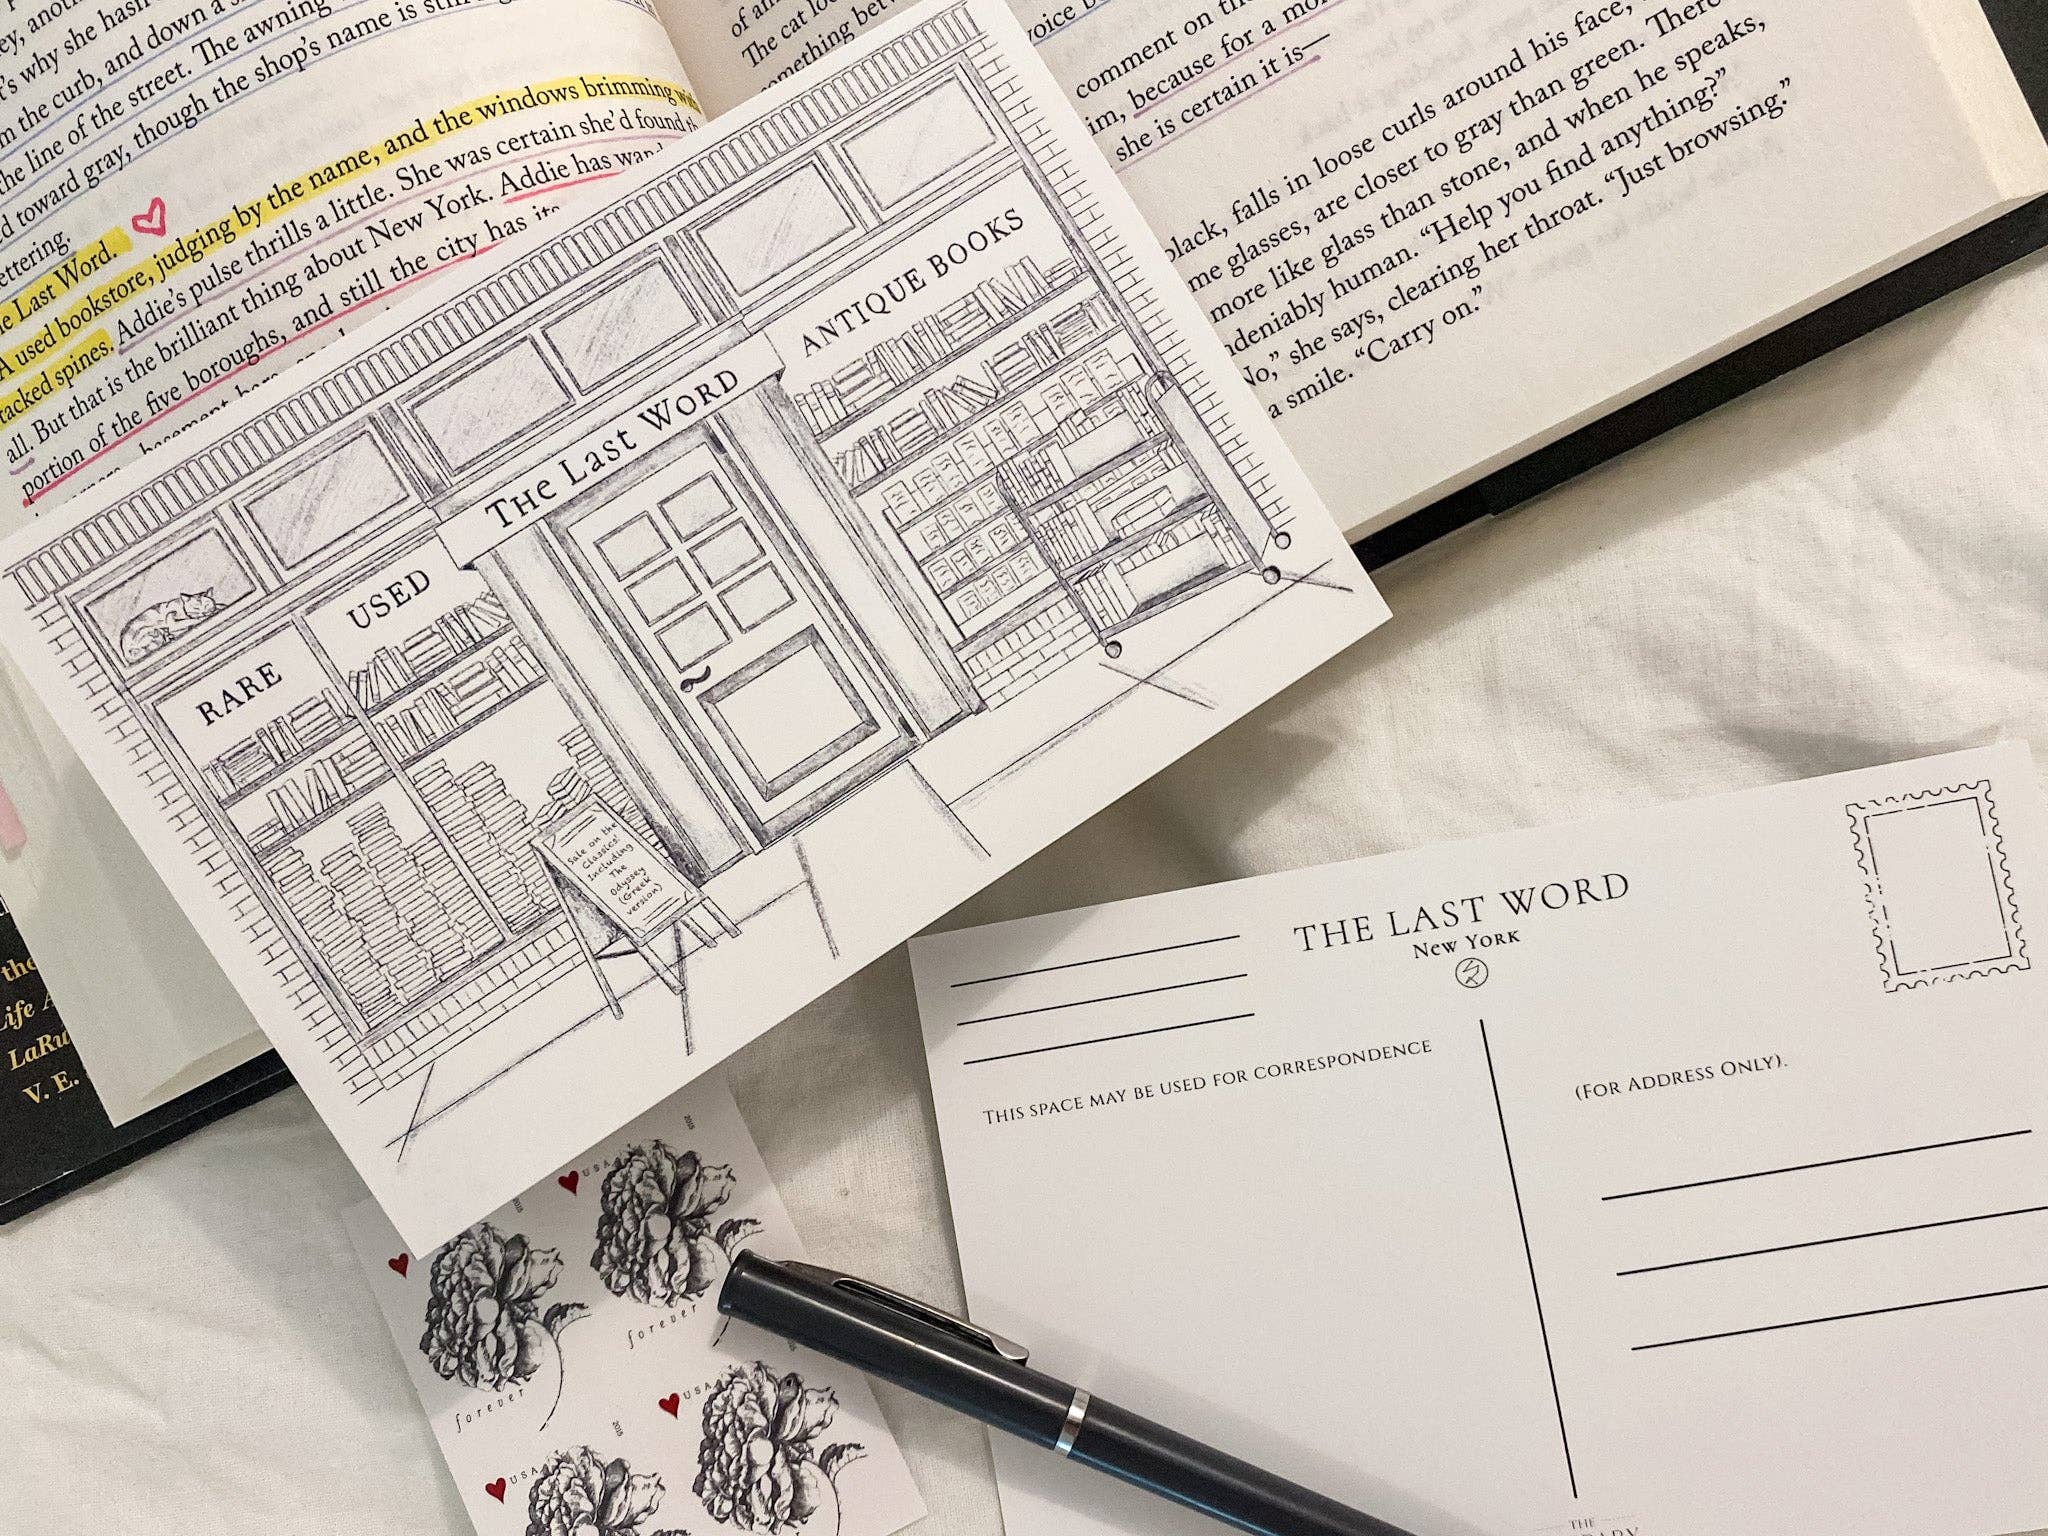 why she hasn
the curb, and down a
the line of the street. The awning
toward gray, though the shop's name is still
Last Word.
A used bookstore, judging by the name, and the windows brimming
spines. Addie's pulse thrills a little. She was certain she'd found
all. But that is the brilliant thing about New York. Addie has
portion of the five boroughs, and still the city has its
The cat
something
voice
comment on
because for a
she is certain it is—
falls in loose curls around his face,
glasses, are closer to gray than green. There
more like glass than stone, and when he speaks,
human. “Help you find anything?”
she says, clearing her throat. “Just browsing.”
a smile. “Carry on.”
the
Life
V. E.
RARE
USED
THE LAST WORD
ANTIQUE BOOKS
Sale on the
Classics'
Including
The
Odyssey
(Greek
version)
THE LAST WORD
NEW YORK
THIS SPACE MAY BE USED FOR CORRESPONDENCE
(FOR ADDRESS ONLY).
THE
2015
USA
forever
2015
forever
USA
2015
USA